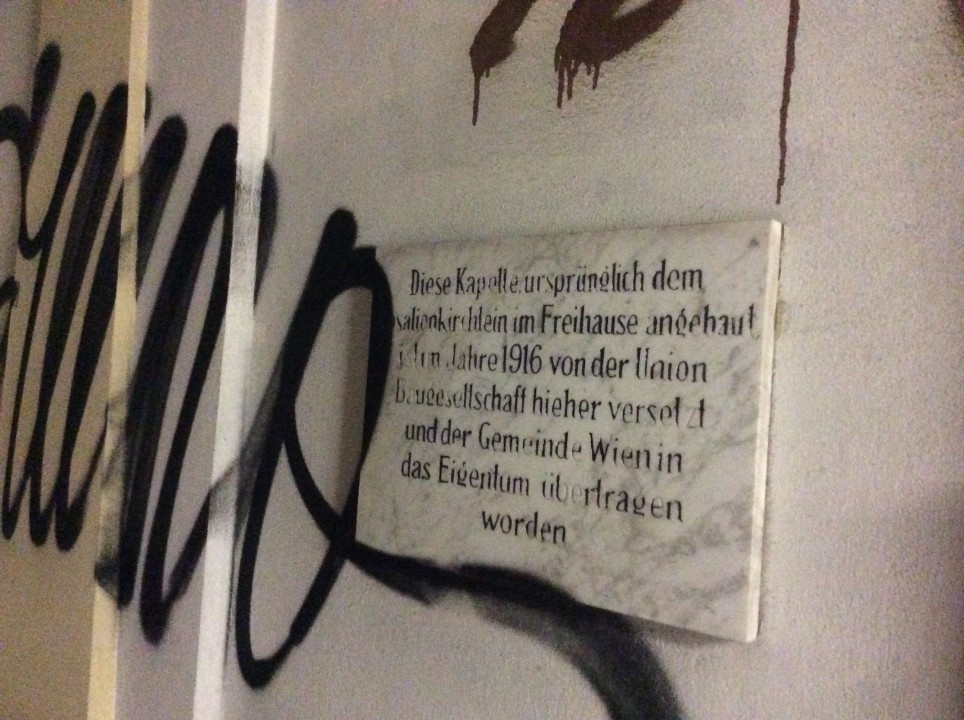 Diese Kapelle, ursprünglich dem
salienkirchlein im Freihause angebaut
ist im Jahre 1916 von der Union
Baugesellschaft hieher versetzt
und der Gemeinde Wien in
das Eigentum übertragen
worden